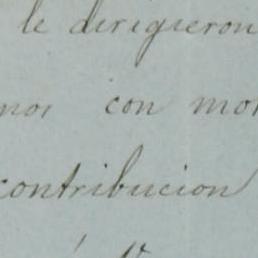 le dirigieron
nos con mo
contribucion